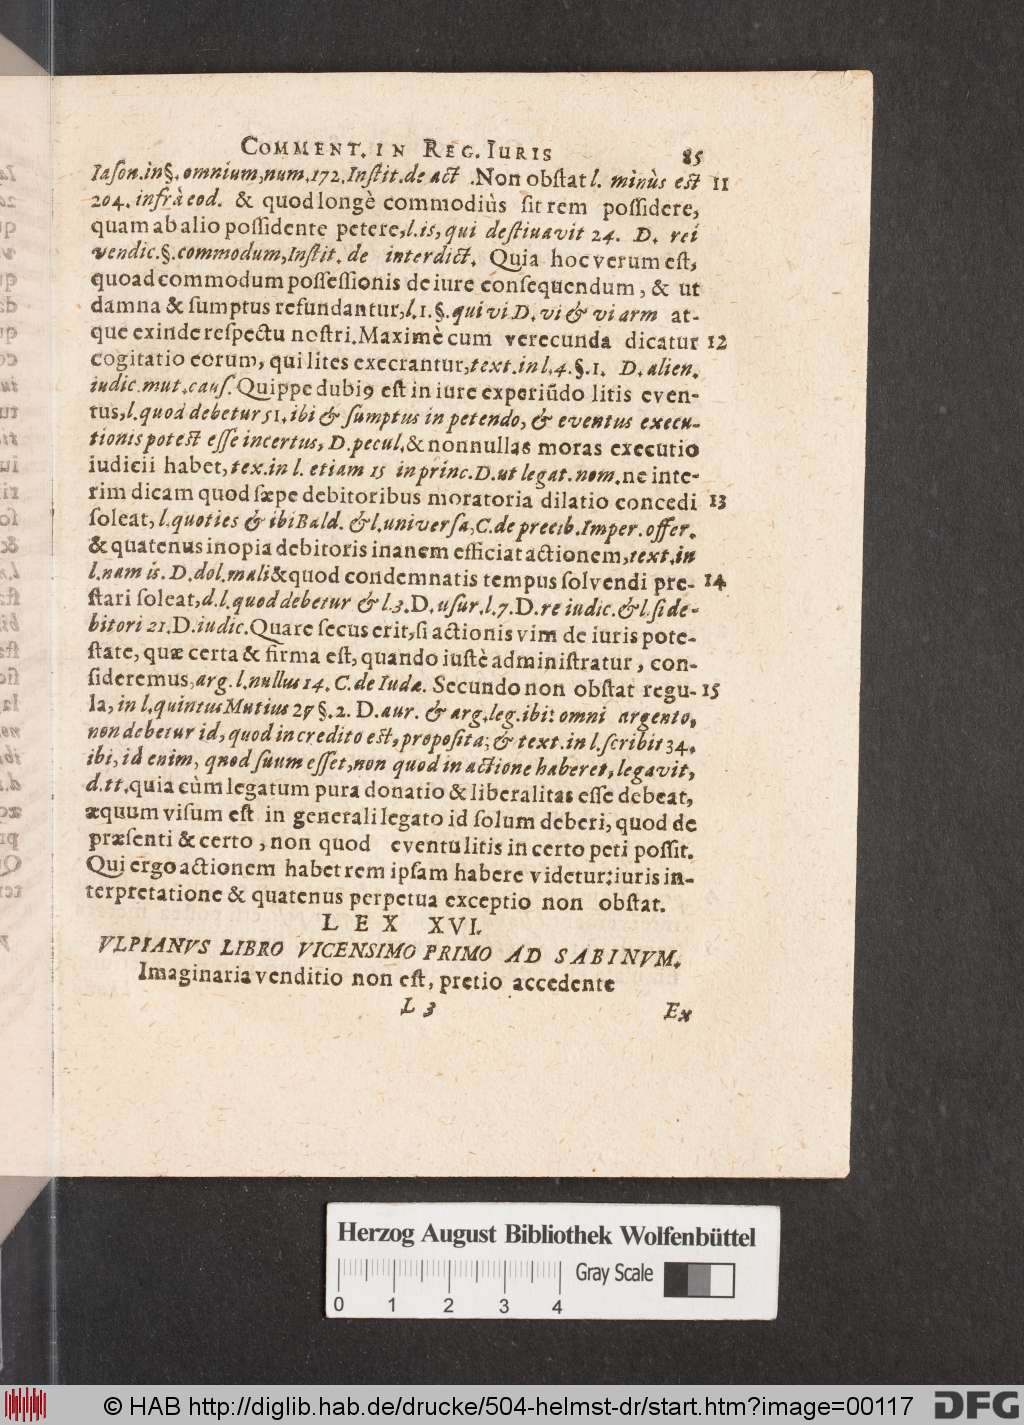 COMMENT. IN REG. IURIS 85
Iason. in §. omnium, num. 172. Instit. de act. Non obstat l. minùs est 11
204. infrà eod. & quod longè commodiùs sit rem possidere,
quam ab alio possidente petere, l. is, qui destiuavit 24. D. rei
vendic. §. commodum, Instit. de interdict. Quia hoc verum est,
quoad commodum possessionis de iure consequendum, & ut
damna & sumptus refundantur, l. 1. §. qui vi D. vi & vi arm at-
que exinde respectu nostri. Maximè cum verecunda dicatur 12
cogitatio eorum, qui lites execrantur, text. in l. 4. §. 1. D. alien.
iudic. mut. caus. Quippe dubiꝰ est in iure experiūdo litis even-
tus, l. quod debetur 51. ibi & sumptus in petendo, & eventus execu-
tionis potest esse incertus, D. pecul. & nonnullas moras executio
iudicii habet, tex. in l. etiam 15 in princ. D. ut legat. nom. ne inte-
rim dicam quod sæpe debitoribus moratoria dilatio concedi 13
soleat, l. quoties & ibi Bald. & l. universa, C. de precib. Imper. offer.
& quatenus inopia debitoris inanem efficiat actionem, text. in
l. nam is. D. dol. mali & quod condemnatis tempus solvendi pre- 14
stari soleat, d. l. quod debetur & l. 3. D. usur. l. 7. D. re iudic. & l. si de-
bitori 21. D. iudic. Quare secus erit, si actionis vim de iuris pote-
state, quæ certa & firma est, quando iustè administratur, con-
sideremus, arg. l. nullus 14. C. de Iudæ. Secundo non obstat regu- 15
la, in l. quintus Mutius 27 §. 2. D. aur. & arg. leg. ibi: omni argento,
non debetur id, quod in credito est, proposita; & text. in l. scribit 34.
ibi, id enim, quod suum esset, non quod in actione haberet, legavit,
d. tt. quia cùm legatum pura donatio & liberalitas esse debeat,
æquum visum est in generali legato id solum deberi, quod de
præsenti & certo, non quod eventu litis incerto peti possit.
Qui ergo actionem habet rem ipsam habere videtur: iuris in-
terpretatione & quatenus perpetua exceptio non obstat.
LEX XVI.
VLPIANVS LIBRO VICENSIMO PRIMO AD SABINVM.
Imaginaria venditio non est, pretio accedente
L 3 Ex
Herzog August Bibliothek Wolfenbüttel
Gray Scale
0 1 2 3 4
© HAB http://diglib.hab.de/drucke/504-helmst-dr/start.htm?image=00117 DFG